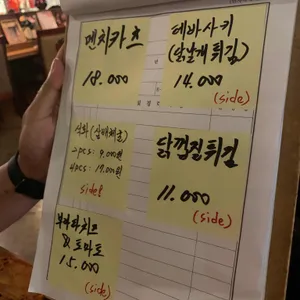 멘치카츠
18.000
테바사키
(닭날개튀김)
14.000
(side)
2pcs: 9.000원
4pcs: 17.000원
side
닭껍질튀김
11.000
(side)
부라타치즈
& 토마토
15.000
(side)